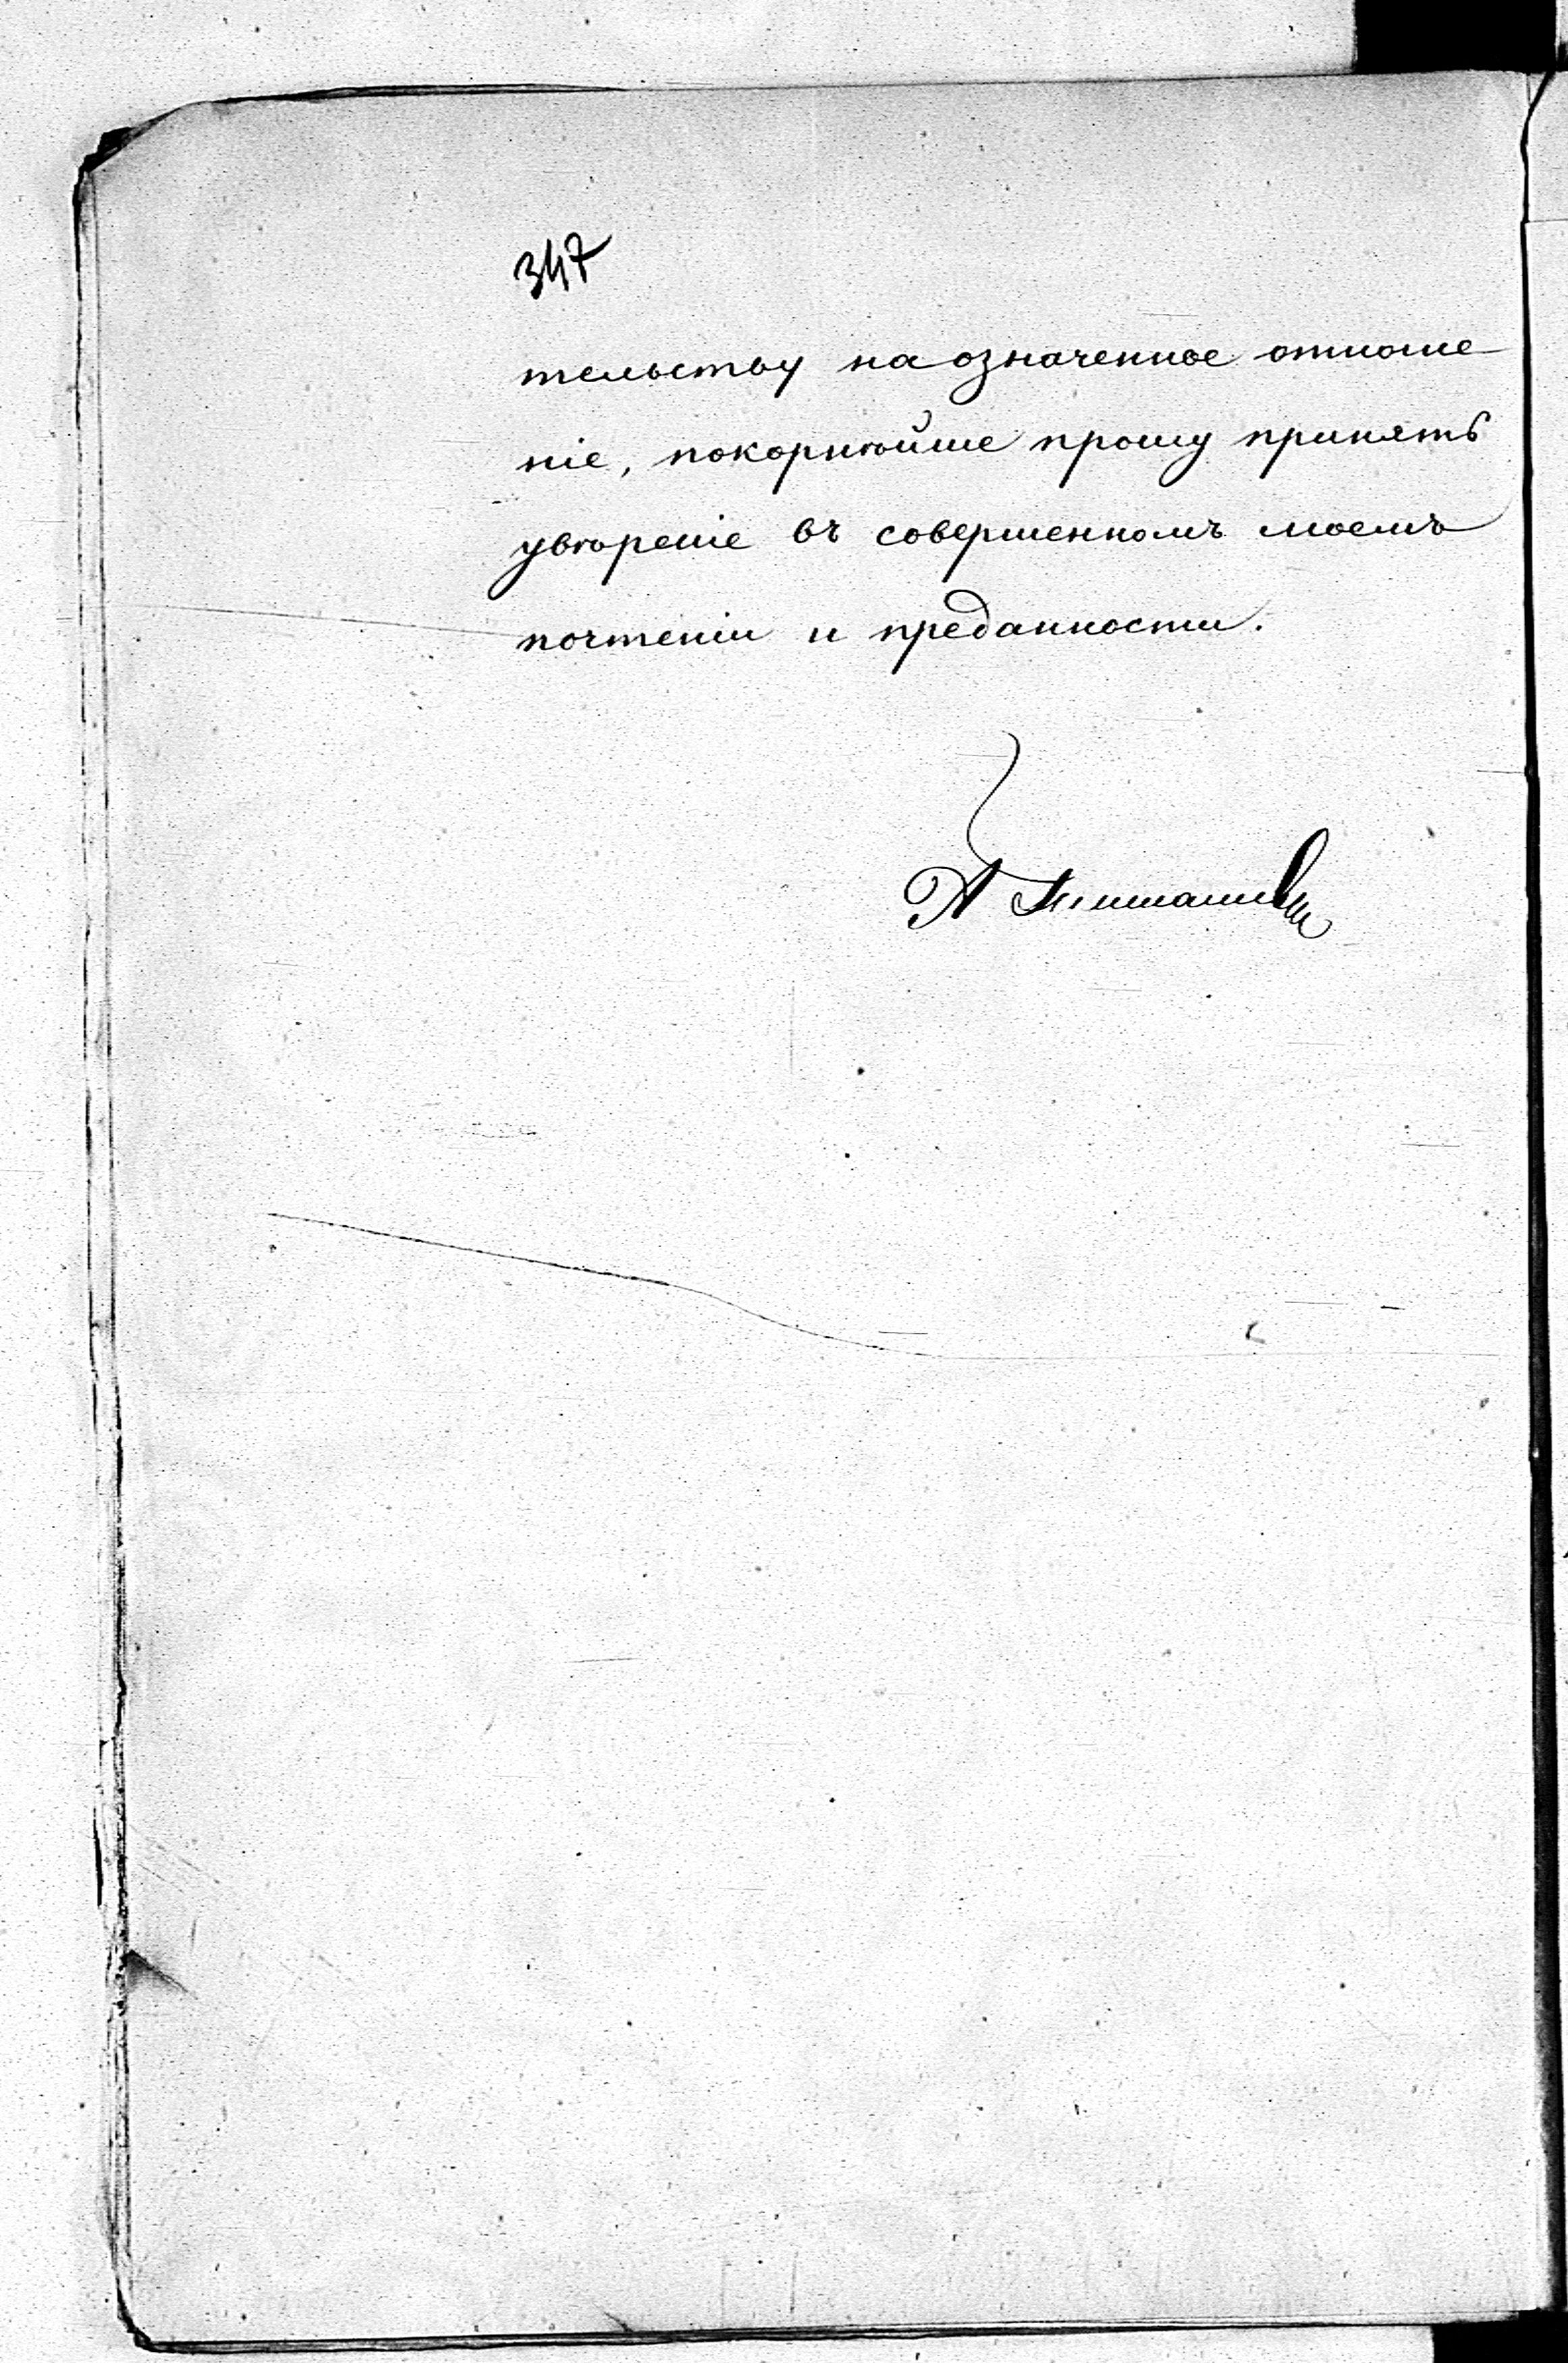 347
тельству на означенное отноше
ніе, покорнѣйше прошу принять
увѣреніе въ совершенномъ моемъ
почтеніи и преданности.
А